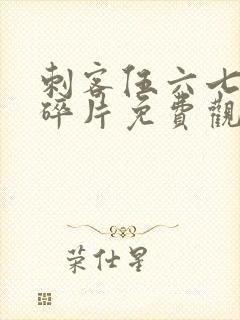 刺客伍六七
碎片免費觀
荣仕星